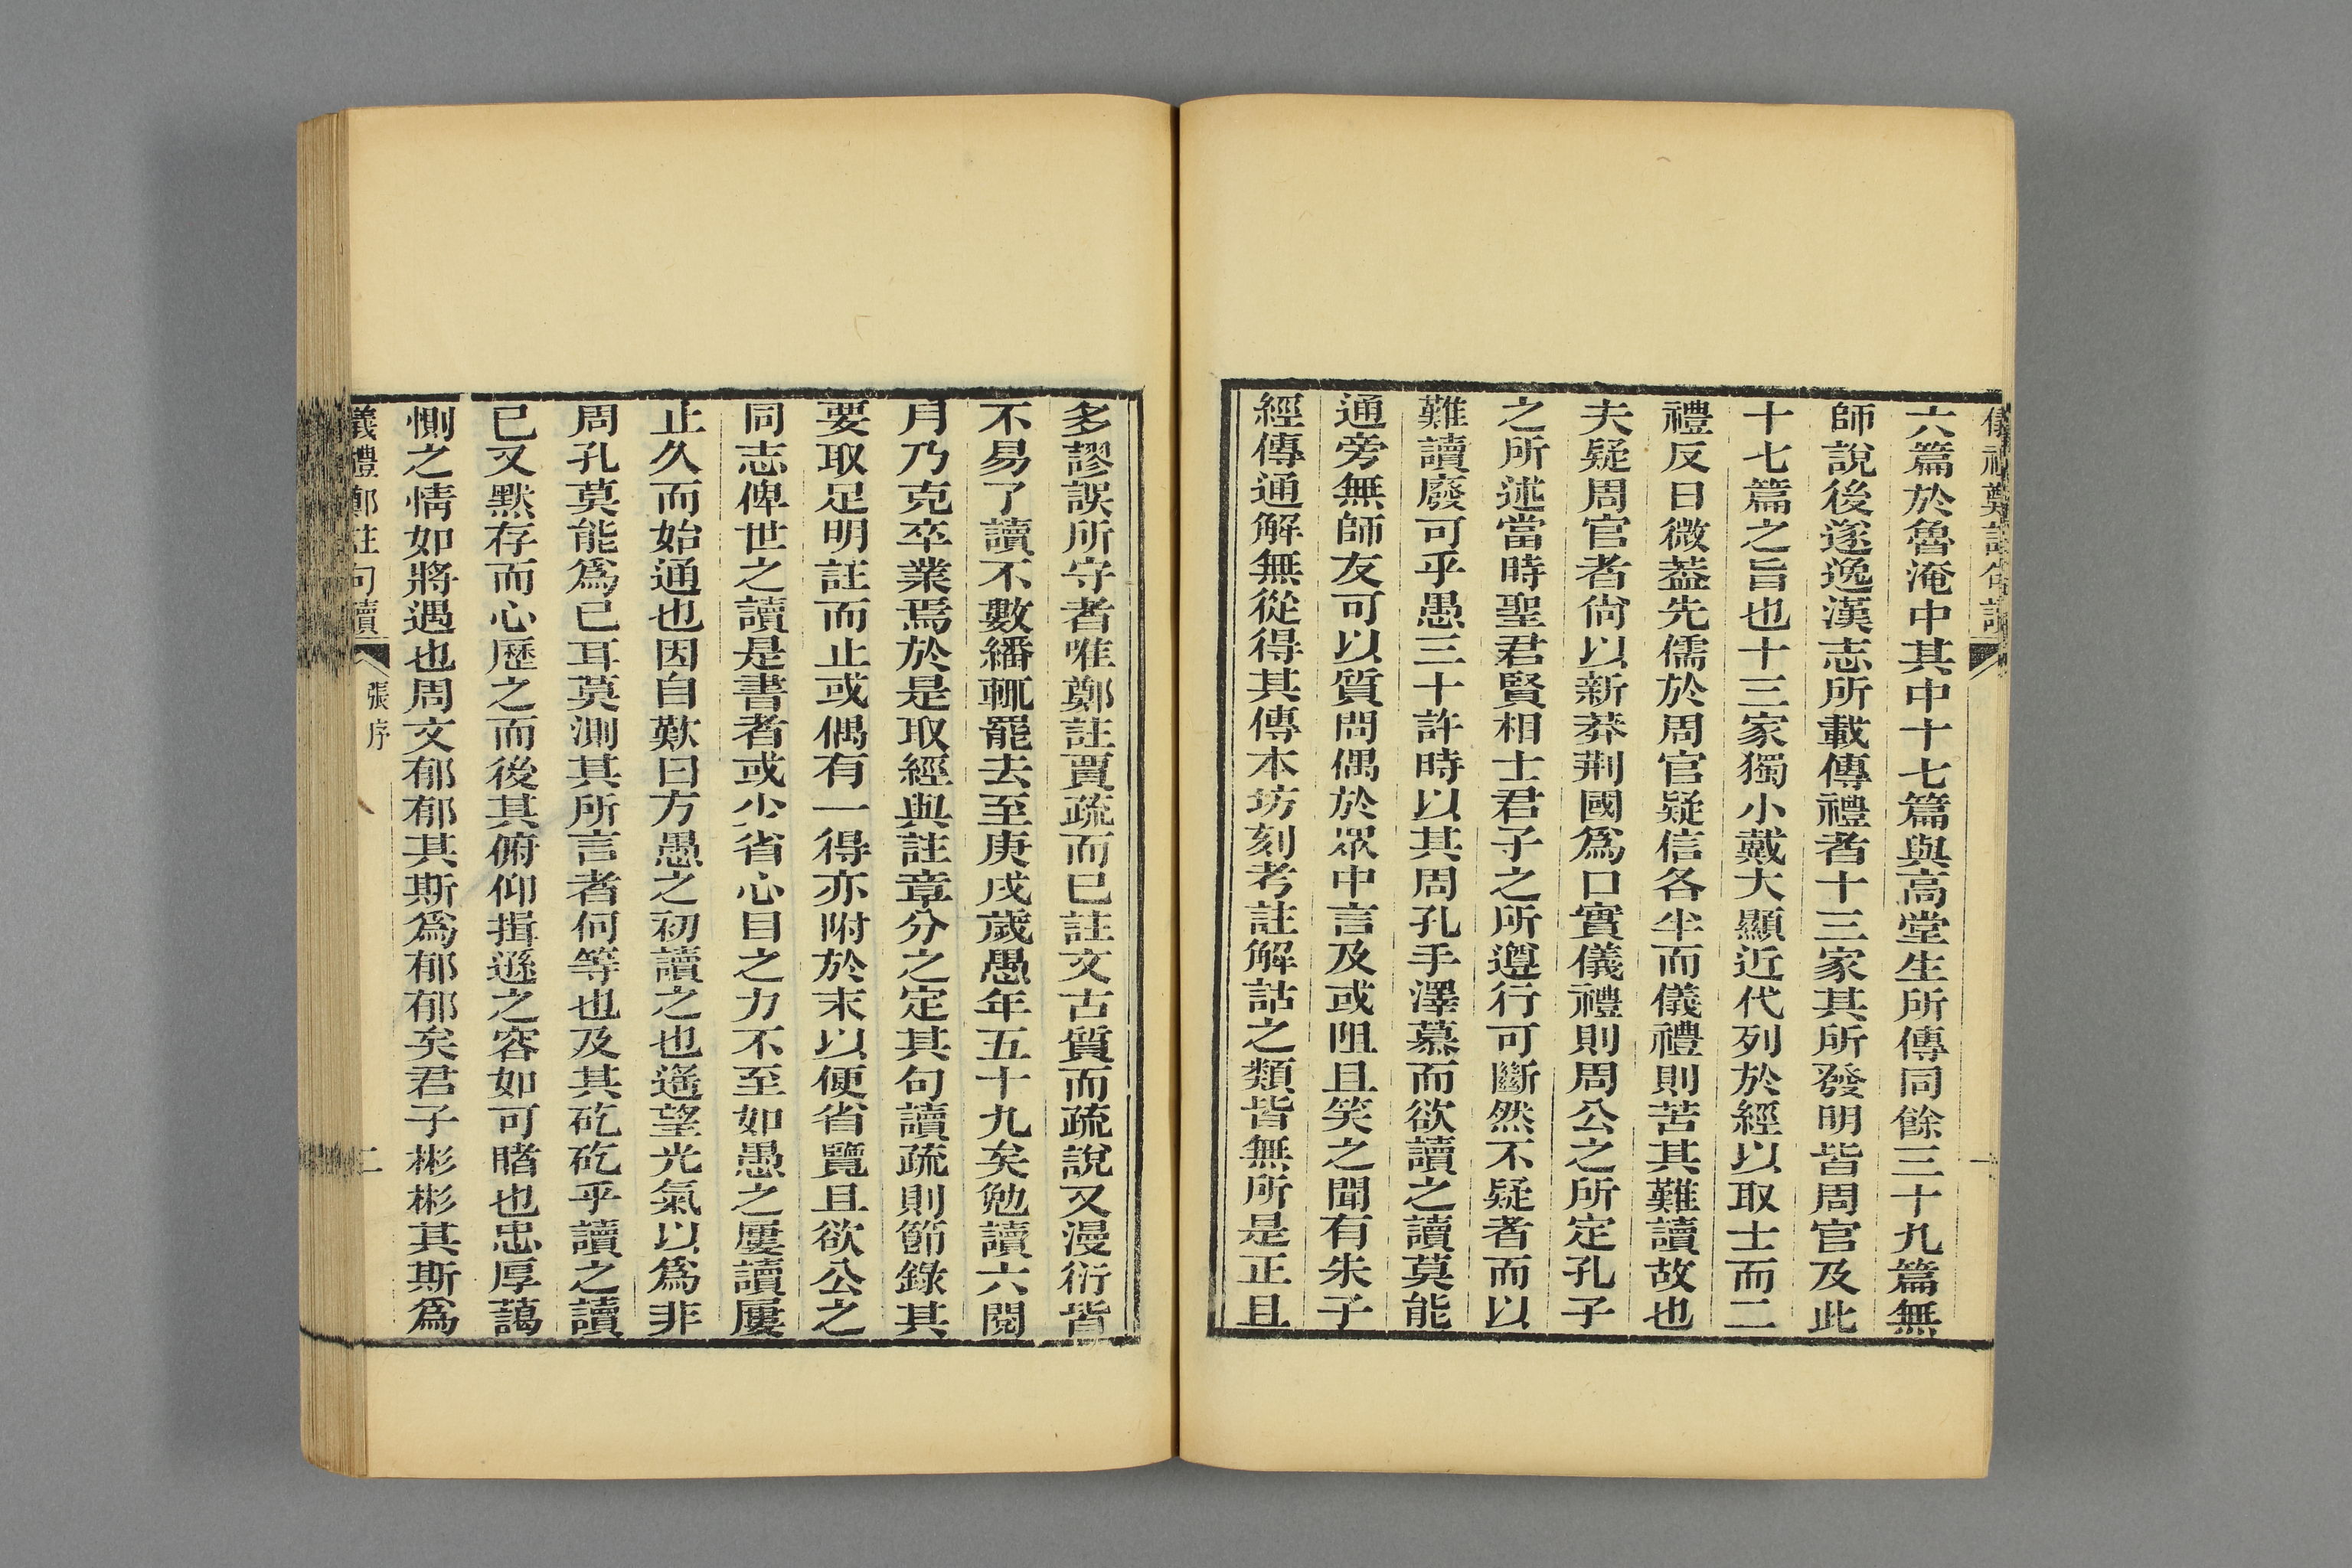 六篇於魯淹中其中十七篇與高堂生所傳同餘三十九篇無
師說後遂逸漢志所載傳禮者十三家其所發明皆周官及此
十七篇之旨也十三家獨小戴大顯近代列於經以取士而二
禮反日微蓋先儒於周官疑信各半而儀禮則苦其難讀故也
夫疑周官者尙以新莽荆國爲口實儀禮則周公之所定孔子
之所述當時聖君賢相士君子之所遵行可斷然不疑者而以
難讀廢可乎愚三十許時以其周孔手澤慕而欲讀之讀莫能
通旁無師友可以質問偶於眾中言及或阻且笑之聞有朱子
經傳通解無從得其傳本坊刻考註解詁之類皆無所是正且
多謬誤所守者唯鄭註賈疏而已註文古質而疏說又漫衍皆
不易了讀不數繙輒罷去至庚戌歲愚年五十九矣勉讀六閱
月乃克卒業焉於是取經與註章分之定其句讀疏則節錄其
要取足明註而止或偶有一得亦附於末以便省覽且欲公之
同志俾世之讀是書者或少省心目之力不至如愚之屢讀屢
止久而始通也因自歎曰方愚之初讀之也遙望光氣以爲非
周孔莫能爲已耳莫測其所言者何等也及其矻矻乎讀之讀
已又默存而心歷之而後其俯仰揖遜之容如可睹也忠厚藹
惻之情如將遇也周文郁郁其斯爲郁郁矣君子彬彬其斯爲
儀禮鄭註句讀
張序
二